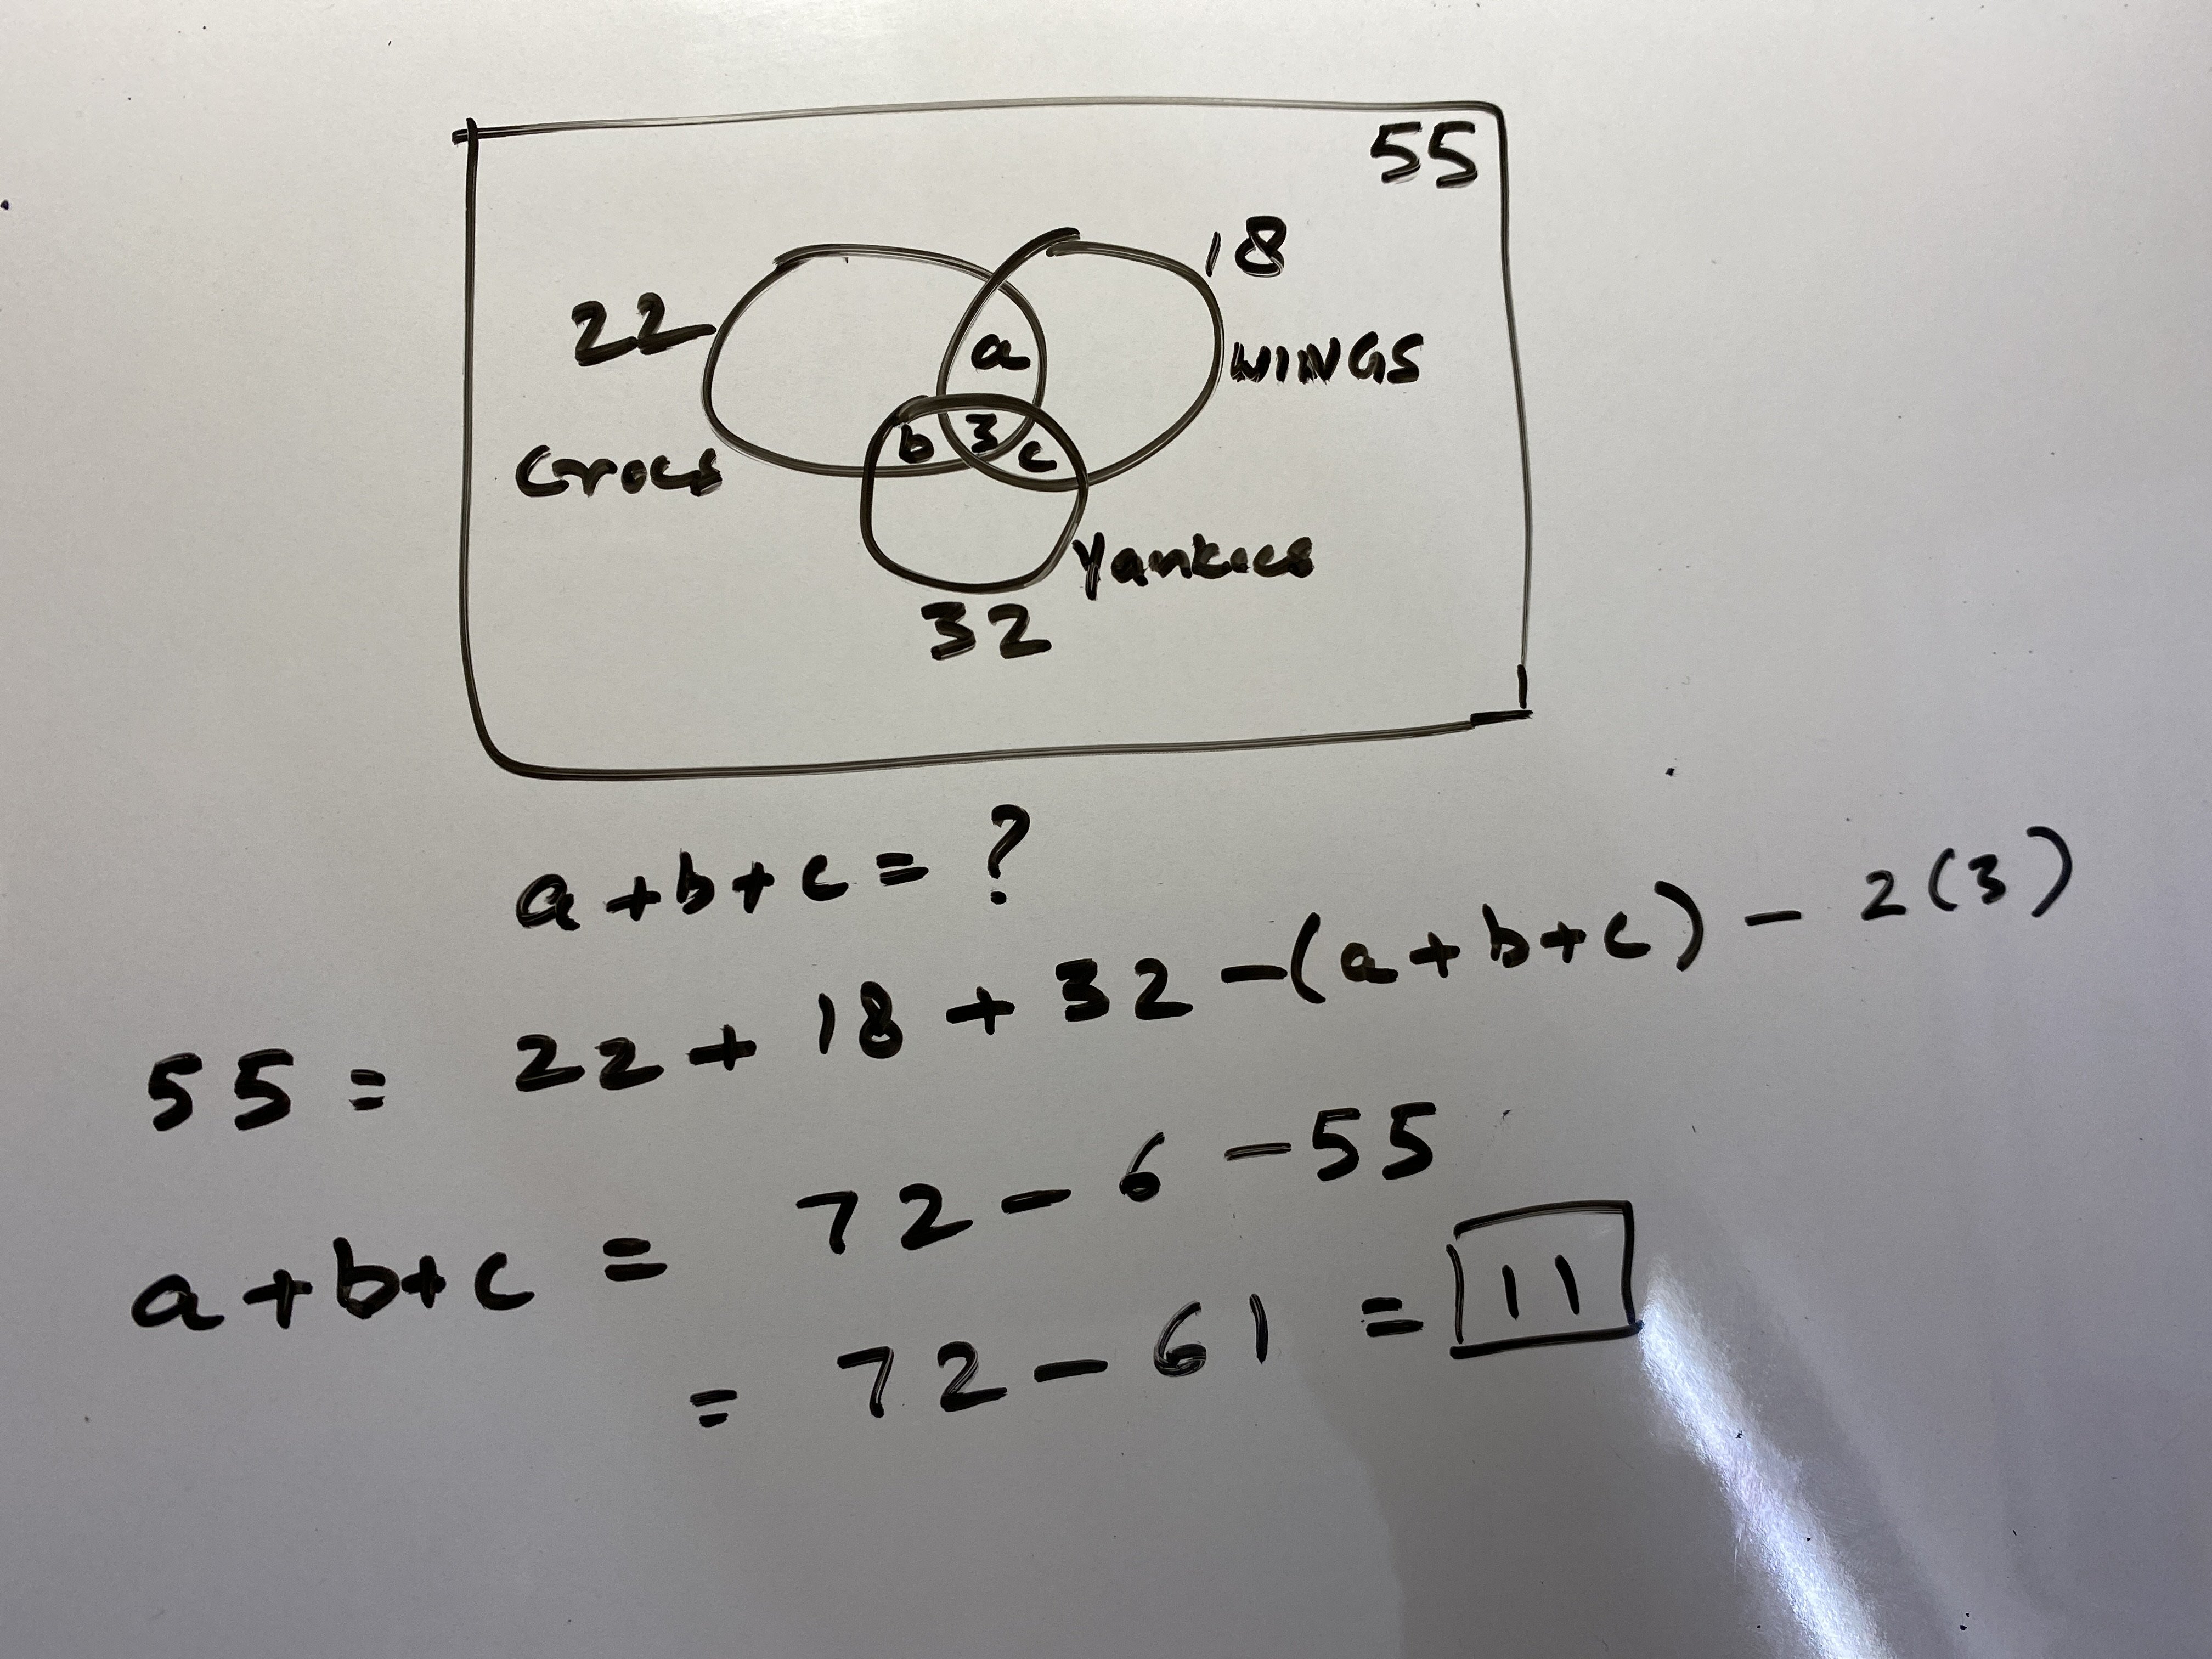 55
18
22
a
WINGS
b 3 c
Crocs
Yankees
32
a+b+c = ?
55 = 22 + 18 + 32 -(a+b+c) - 2(3)
a+b+c = 72 - 6 - 55
= 72 - 61 = 11